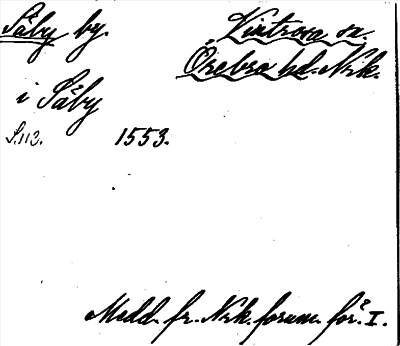 Säby by. Vintrosa sn.
Örebro hd. Nrk.
i Säby
S.113. 1553.
Medd. fr. Nrk. fornm.för. I.